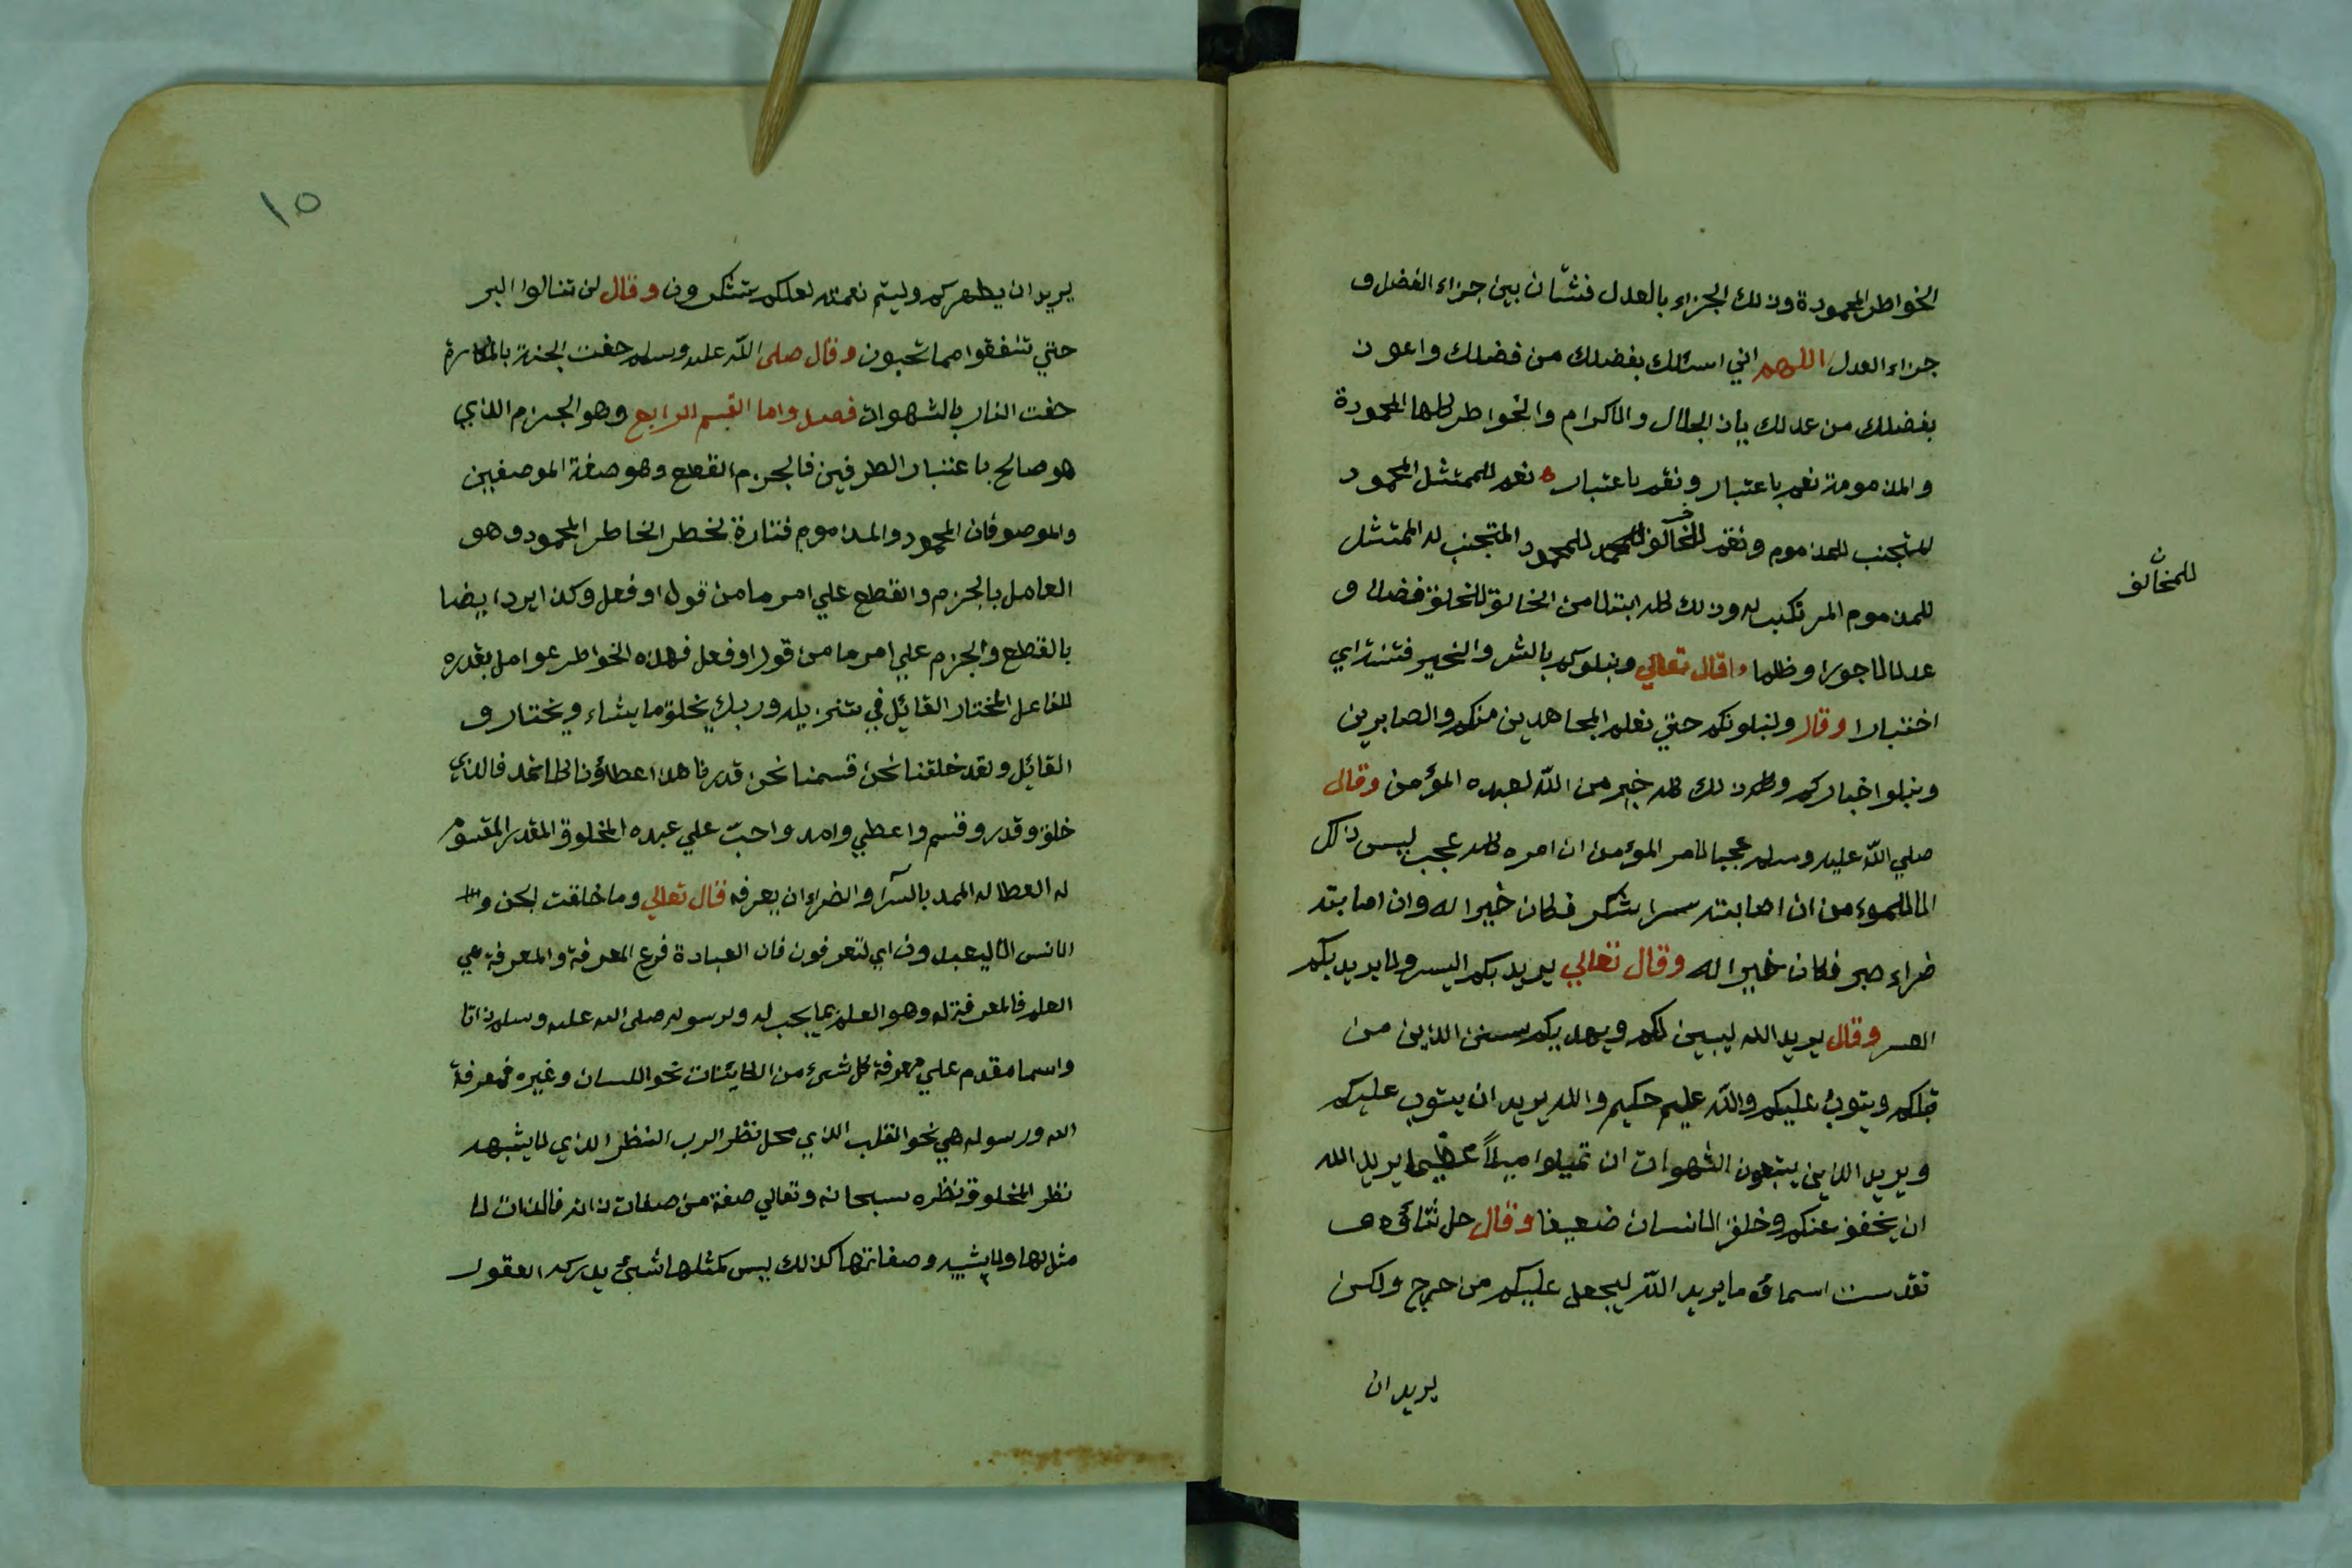 الخواطر المحمودة وذلك الجزاء بالعدل فشتان بين جزاء الفضل و
جزاء العدل اللهم اني اسئلك بفضلك من فضلك واعوذ
بفضلك من عدلك ياذ الجلال والاكرام والخواطر كلها المحمودة
والمذمومة نعم باعتبار ونقم باعتبار ه نعم للممتثل المحمود
للمتجنب للمذموم ونقم للمخالف للمحمود المتجنب له الممتثل
للمخالف ن
للمذموم المرتكب له وذلك كله ابتلا من الخالق للخلق فضلا و
عدلا لا جورا وظلما قال تعالي ونبلوكم بالشر والخير فتنة اي
اختبارا وقال ولنبلونكم حتي نعلم المجاهدين منكم والصابرين
ونبلو اخباركم وكل ذلك كله خير من الله لعبده المؤمن وقال
صلي الله عليه وسلم عجبا لامر المؤمن ان امره كله عجب ليس ذلك
الا للموءمن ان اصابته سرا شكر فكان خيرا له وان اصابته
ضراء صبر فكان خيرا له وقال تعالي يريد بكم اليسر ولا يريد بكم
العسر وقال يريد الله ليبين لكم ويهديكم سنن الذين من
قبلكم ويتوب عليكم والله عليم حكيم والله يريد ان يتوب عليكم
ويريد الذين يتبعون الشهوات ان تميلوا ميلاً عظيما يريد الله
ان يخفف عنكم وخلق الانسان ضعيفا وقال جل ثناؤه
تقدست اسماؤه ما يريد الله ليجعل عليكم من حرج ولكن
يريد ان
١٥
يريد ان يطهركم وليتم نعمته لعلكم تشكرون وقال لن تنالوا البر
حتي تنفقوا مما تحبون وقال صلى الله عليه وسلم حفت الجنة بالمكارة
حفت النار بالشهوات فصل واما القسم الرابع وهو الجزم الذي
هو صالح باعتبار الطرفين فالجزم القطع وهو صفة الموصفين
والموصوفان المحمود والمذموم فتارة تخطر الخاطر المحمود وهو
العامل بالجزم والقطع علي امر ما من قول او فعل وكذا يرد ايضا
بالقطع والجزم علي امر ما من قول او فعل فهذه الخواطر عوامل بقدره
الفاعل المختار القائيل في تنزيله وربك يخلق ما يشاء ويختار و
القائيل ولقد خلقنا نحن قسمنا نحن قدرنا هذا عطاؤنا كلا نمد فالذي
خلق وقدر وقسم واعطي وامد واجب علي عبده المخلوق المقدر المقسوم
له العطا له الممد بالسرا والضراء ان يعرفه قال تعالي وما خلقت الجن و
الانس الا ليعبدون اي لتعرفون فان العبادة فرع المعرفة والمعرفة هي
العلم فالمعرفة له وهو العلم بما يجب له ولرسوله صلى الله عليه وسلم ذاتا
واسما مقدم علي معرفة كل شيء من الكائينات نحو اللسان وغيره فمعرفة
الله ورسوله هي نحو القلب الذي محل نظر الرب النظر الذي لا يشبهه
نظر المخلوق نظره سبحانه وتعالي صفة من صفات ذاته فالذات لا
مثل لها ولا شبيه وصفاتها كذلك ليس كمثلها شيئ يدركه العقول